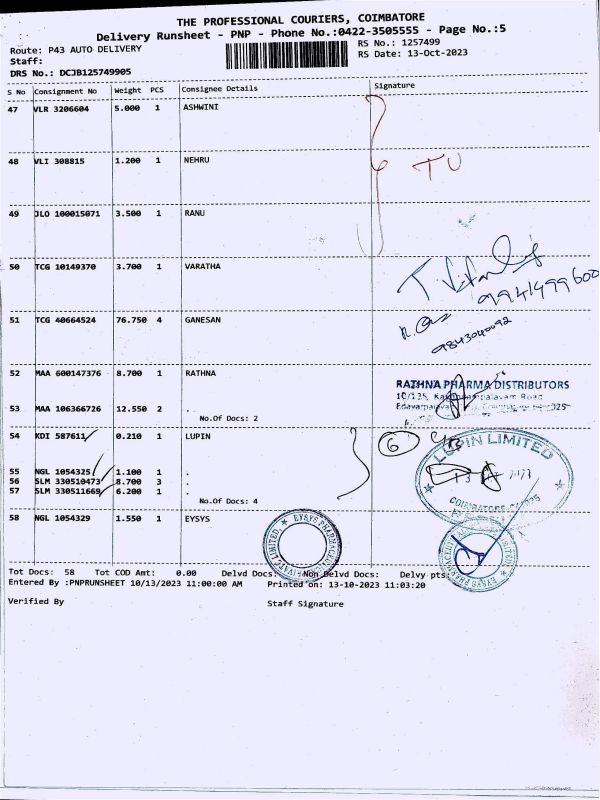 THE PROFESSIONAL COURIERS, COIMBATORE
Delivery Runsheet - PNP - Phone No.:0422-3505555 - Page No.:5
Route: P43 AUTO DELIVERY
RS No.: 1257499
Staff:
RS Date: 13-Oct-2023
DRS No.: DCJB125749905
S No Consignment No Weight PCS Consignee Details Signature
47 VLR 3206604 5.000 1 ASHWINI
48 VLI 308815 1.200 1 NEHRU
TU
49 JLO 100015071 3.500 1 RANU
50 TCG 10149370 3.700 1 VARATHA
9941499600
51 TCG 40664524 76.750 4 GANESAN
9843040092
52 MAA 600147376 8.700 1 RATHNA
RATHNA PHARMA DISTRIBUTORS
53 MAA 106366726 12.550 2 .
No.Of Docs: 2
54 KDI 587611 0.210 1 LUPIN
6
LUPIN LIMITED
55 NGL 1054325 1.100 1 .
56 SLM 330510473 8.700 3 .
57 SLM 330511669 6.200 1 .
No.Of Docs: 4
58 NGL 1054329 1.550 1 EYSYS
EYSYS PHARMACEUTICAL PRIVATE LIMITED
Tot Docs: 58 Tot COD Amt: 0.00 Delvd Docs: Non Delvd Docs: Delvy pts:
Entered By :PNPRUNSHEET 10/13/2023 11:00:00 AM Printed on: 13-10-2023 11:03:20
Verified By Staff Signature